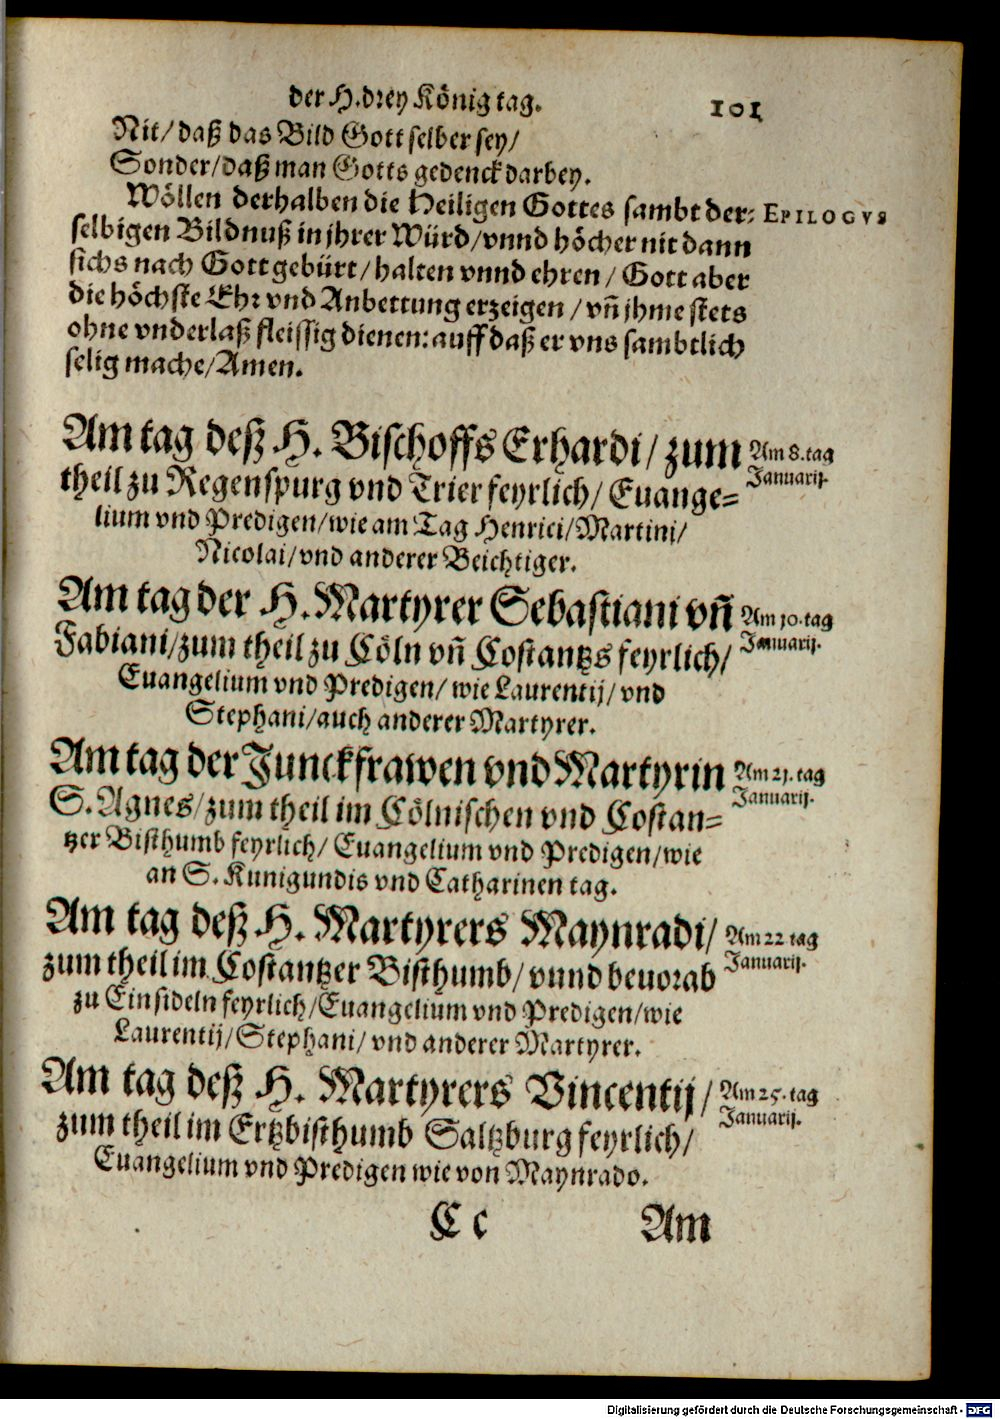 der H. drey König tag. 101
Nit/ daß das Bild Gott selber sey/
Sonder/ daß man Gotts gedenck darbey.
Wöllen derhalben die Heiligen Gottes sambt der⸗ EPILOGVS
selbigen Bildnuß in jhrer Würd/ vnnd höcher nit dann
sichs nach Gott gebürt/ halten vnnd ehren/ Gott aber
die höchste Ehr vnd Anbettung erzeigen/ vñ jhme stets
ohne vnderlaß fleissig dienen: auff daß er vns sambtlich
selig mache/ Amen.
Am tag deß H. Bischoffs Erhardi/ zum
Am 8. tag
Januarij.
theil zu Regenspurg vnd Trier feyrlich/ Euange⸗
lium vnd Predigen/ wie am Tag Henrici/ Martini/
Nicolai/ vnd anderer Beichtiger.
Am tag der H. Martyrer Sebastiani vñ
Am 10. tag
Januarij.
Fabiani/ zum theil zu Cöln vñ Costantzs feyrlich/
Euangelium vnd Predigen/ wie Laurentij/ vnd
Stephani/ auch anderer Martyrer.
Am tag der Junckfrawen vnd Martyrin
Am 21. tag
Januarij.
S. Agnes/ zum theil im Cölnischen vnd Costan⸗
tzer Bisthumb feyrlich/ Euangelium vnd Predigen/ wie
an S. Kunigundis vnd Catharinen tag.
Am tag deß H. Martyrers Maynradi/
Am 22 tag
Januarij.
zum theil im Costantzer Bisthumb/ vnnd beuorab
zu Einsideln feyrlich/ Euangelium vnd Predigen/ wie
Laurentij/ Stephani/ vnd anderer Martyrer.
Am tag deß H. Martyrers Vincentij/
Am 25. tag
Januarij.
zum theil im Ertzbisthumb Saltzburg feyrlich/
Euangelium vnd Predigen wie von Maynrado.
C c Am
Digitalisierung gefördert durch die Deutsche Forschungsgemeinschaft - DFG